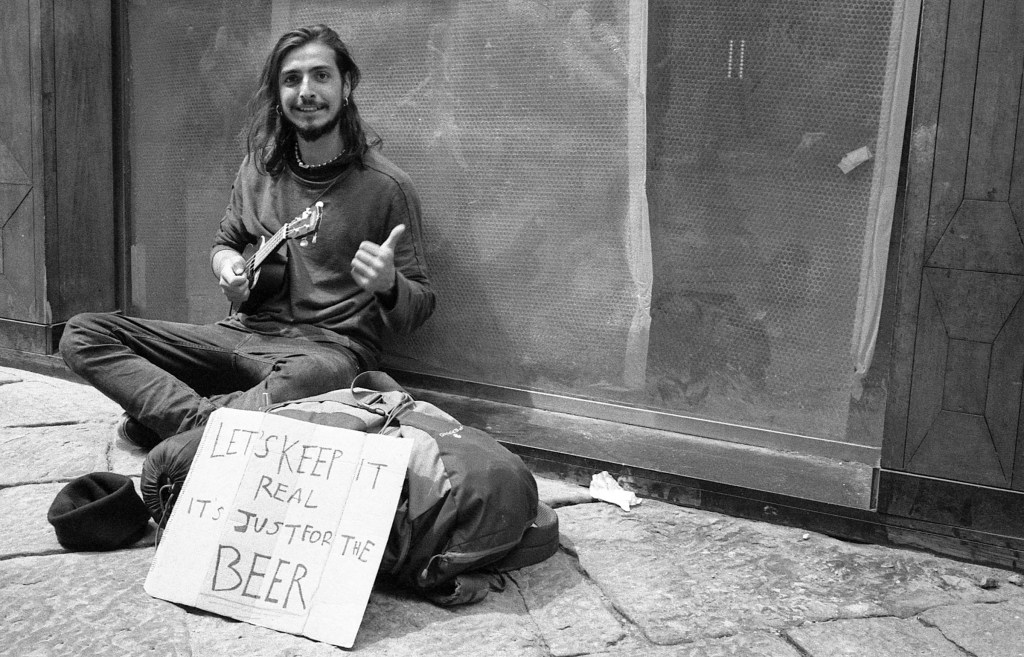 LET'S KEEP IT
REAL
IT'S JUST FOR THE
BEER